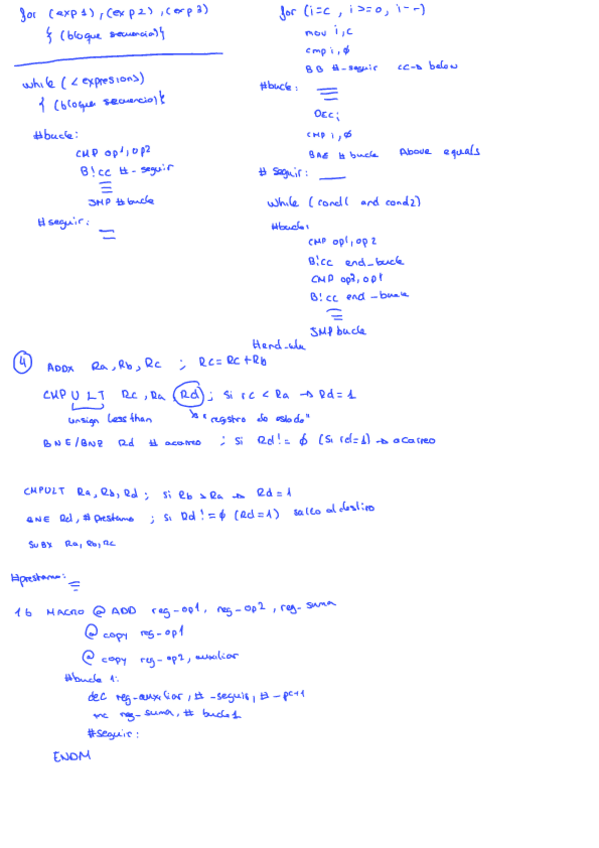 for (exp1), (exp2), (exp3)
{ (bloque secuencia)}
while (< expresions)
{ (bloque secuencia)}
#bucle:
CMP op1, op2
B!cc #-seguir
JMP #bucle
#seguir:
for (i=c, i>=0, i--)
mov i,c
cmp i,ø
BB #-seguir cc→ below
#bucle:
DEC i
CMP i,ø
BAE #bucle Above equals
#Seguir:
while (cond1 and cond2)
#bucle:
CMP op1, op2
B!cc end_bucle
CMP op2, op1
B!cc end-bucle
JMP bucle
④ ADDX Ra, Rb, Rc ; Rc=Rc+Rb
CMP U LT Rc, Ra, Rd ; Si rc < Ra → Rd=1
unsign less than "registro de estado"
BNE/BNZ Rd # acarreo ; Si Rd != ø (Si rd=1) → acarreo
CMPULT Ra, Rb, Rd ; Si Rb > Ra → Rd=1
BNE Rd, #prestamo ; Si Rd != ø (Rd=1) salto al destino
SUBX Ra, Rb, Rc
#prestamo:
16 MACRO @ ADD reg-op1, reg-op2, reg-suma
@ copy reg-op1
@ copy reg-op2, auxiliar
#bucle 1:
dec reg-auxiliar, #-seguir, #-pc+1
inc reg-suma, # bucle1
#seguir:
ENDM